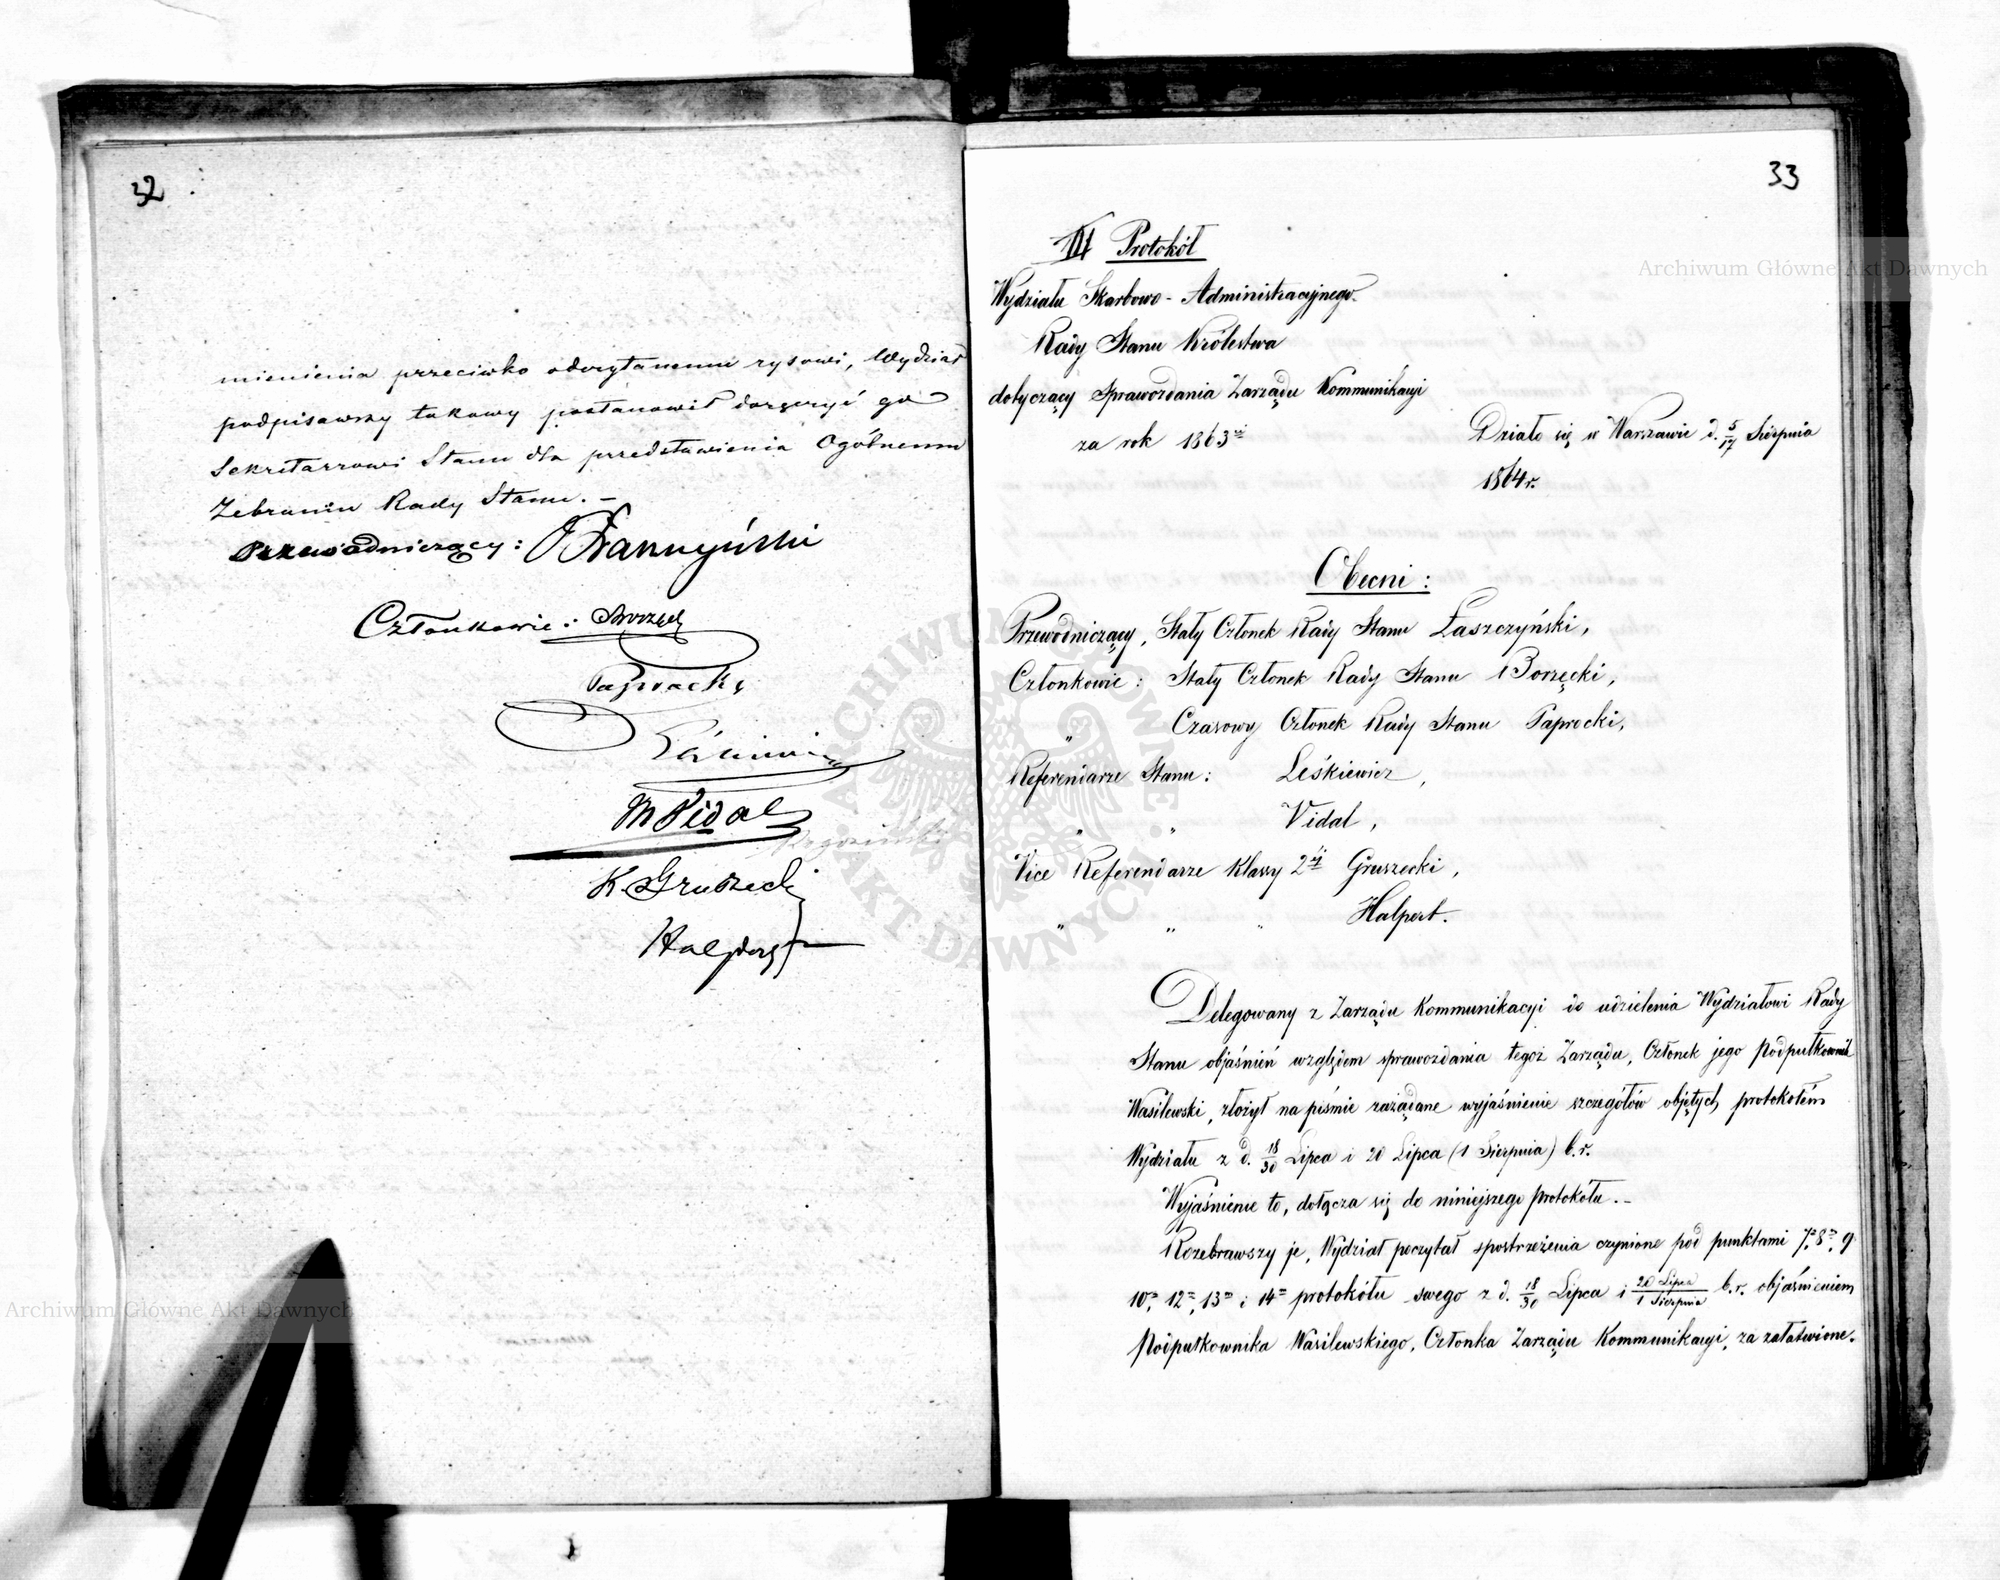 32
mienienia przeciwko odczytanemu rysowi, Wydział
podpisawszy takowy postanowił doręczyć go
Sekretarzowi Stanu dla przedstawienia Ogólnemu
Zebraniu Rady Stanu. –
Przewodniczący:
Członkowie: Borzęcki
Paprocki
M Vidal
K. Gruszecki
Halpert
33
III Protokół
Wydziału Skarbowo-Administracyjnego
Rady Stanu Królestwa
dotyczący Sprawozdania Zarządu Kommunikacyi
za rok 1863
Działo się w Warszawie d. 5/17 Sierpnia
1864 r.
Obecni:
Przewodniczący, Stały Członek Rady Stanu Łaszczyński,
Członkowie: Stały Członek Rady Stanu Borzęcki,
„ Czasowy Członek Rady Stanu Paprocki,
Referendarze Stanu: Leśkiewicz,
„ „ Vidal,
Vice Referendarze Klassy 2éj Gruszecki,
„ „ „ Halpert.
Delegowany z Zarządu Kommunikacyi do udzielenia Wydziałowi Rady
Stanu objaśnień względem sprawozdania tegoż Zarządu, Członek jego Podpułkownik
Wasilewski, złożył na piśmie zażądane wyjaśnienie szczegółów objętych protokołem
Wydziału z d. 18/30 Lipca i 20 Lipca (1 Sierpnia) b.r.
Wyjaśnienie to, dołącza się do niniejszego protokółu. –
Rozebrawszy je, Wydział poczytał spostrzeżenia czynione pod punktami 7m, 8m, 9
10m, 12m, 13m i 14m protokółu swego z d. 18/30 Lipca i 20 Lipca/1 Sierpnia b.r. objaśnieniem
Podpułkownika Wasilewskiego, Członka Zarządu Kommunikacyi, za załatwione.
Archiwum Główne Akt Dawnych
Archiwum Główne Akt Dawnych
ARCHIWUM GŁÓWNE AKT DAWNYCH